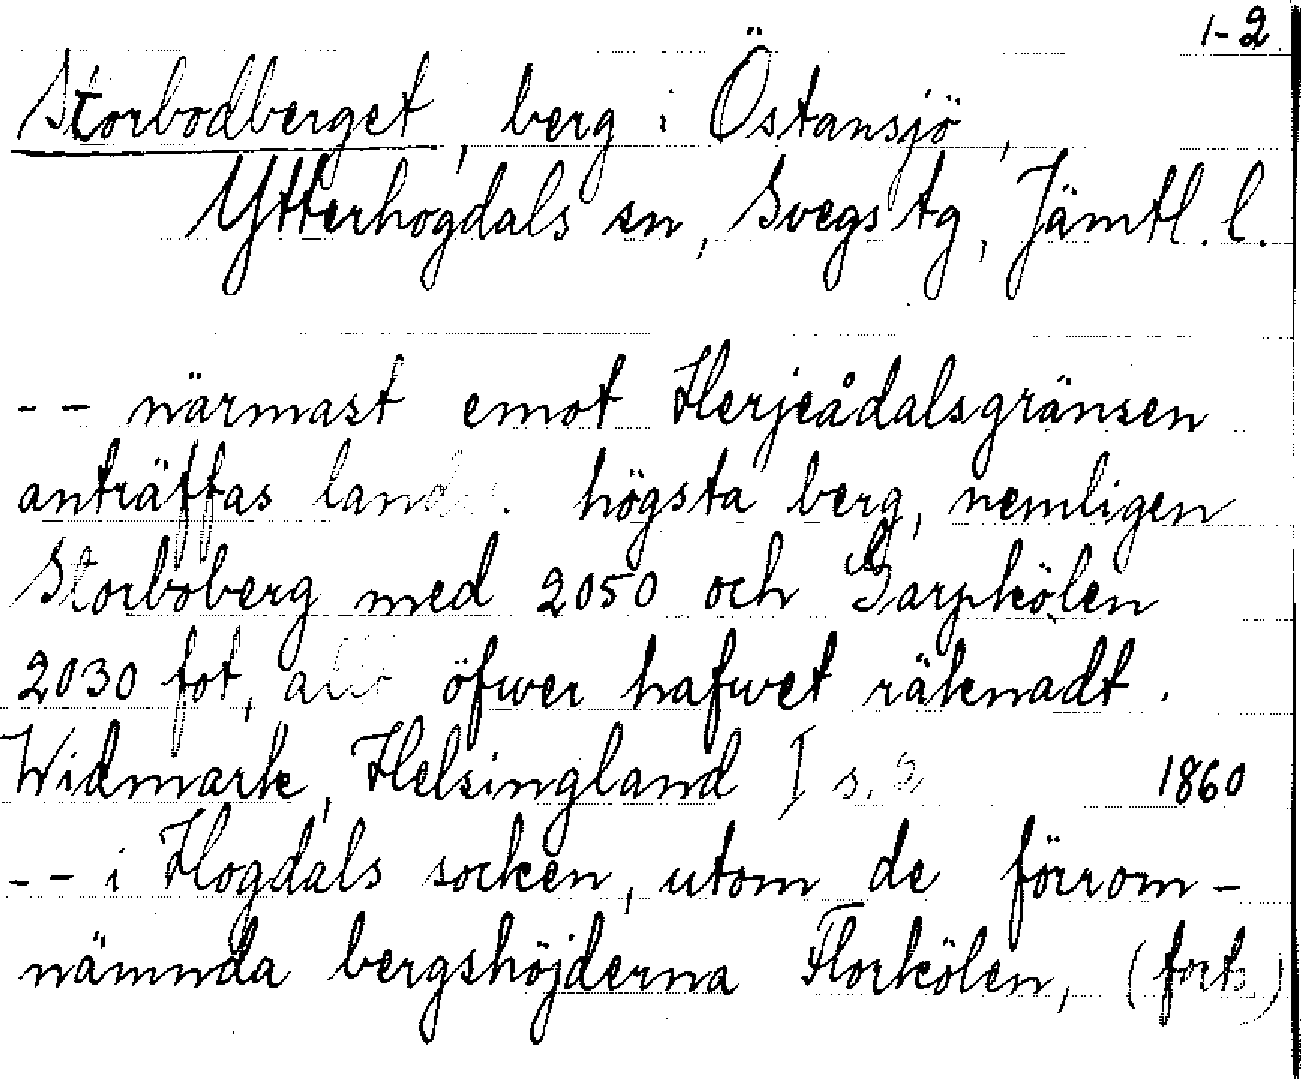 1-2
Storbodberget, berg i Östansjö,
Ytterhogdals sn, Svegs tg, Jämtl. l.
-- närmast emot Herjeådalsgränsen
anträffas högsta berg, nemligen
Storboberg med 2050 och Garpkölen
2030 fot, allt öfwer hafwet räknadt.
Widmark, Helsingland I s. 2 1860
-- i Hogdals socken, utom de förrom-
nämnda bergshöjderna Florkölen, (forts)